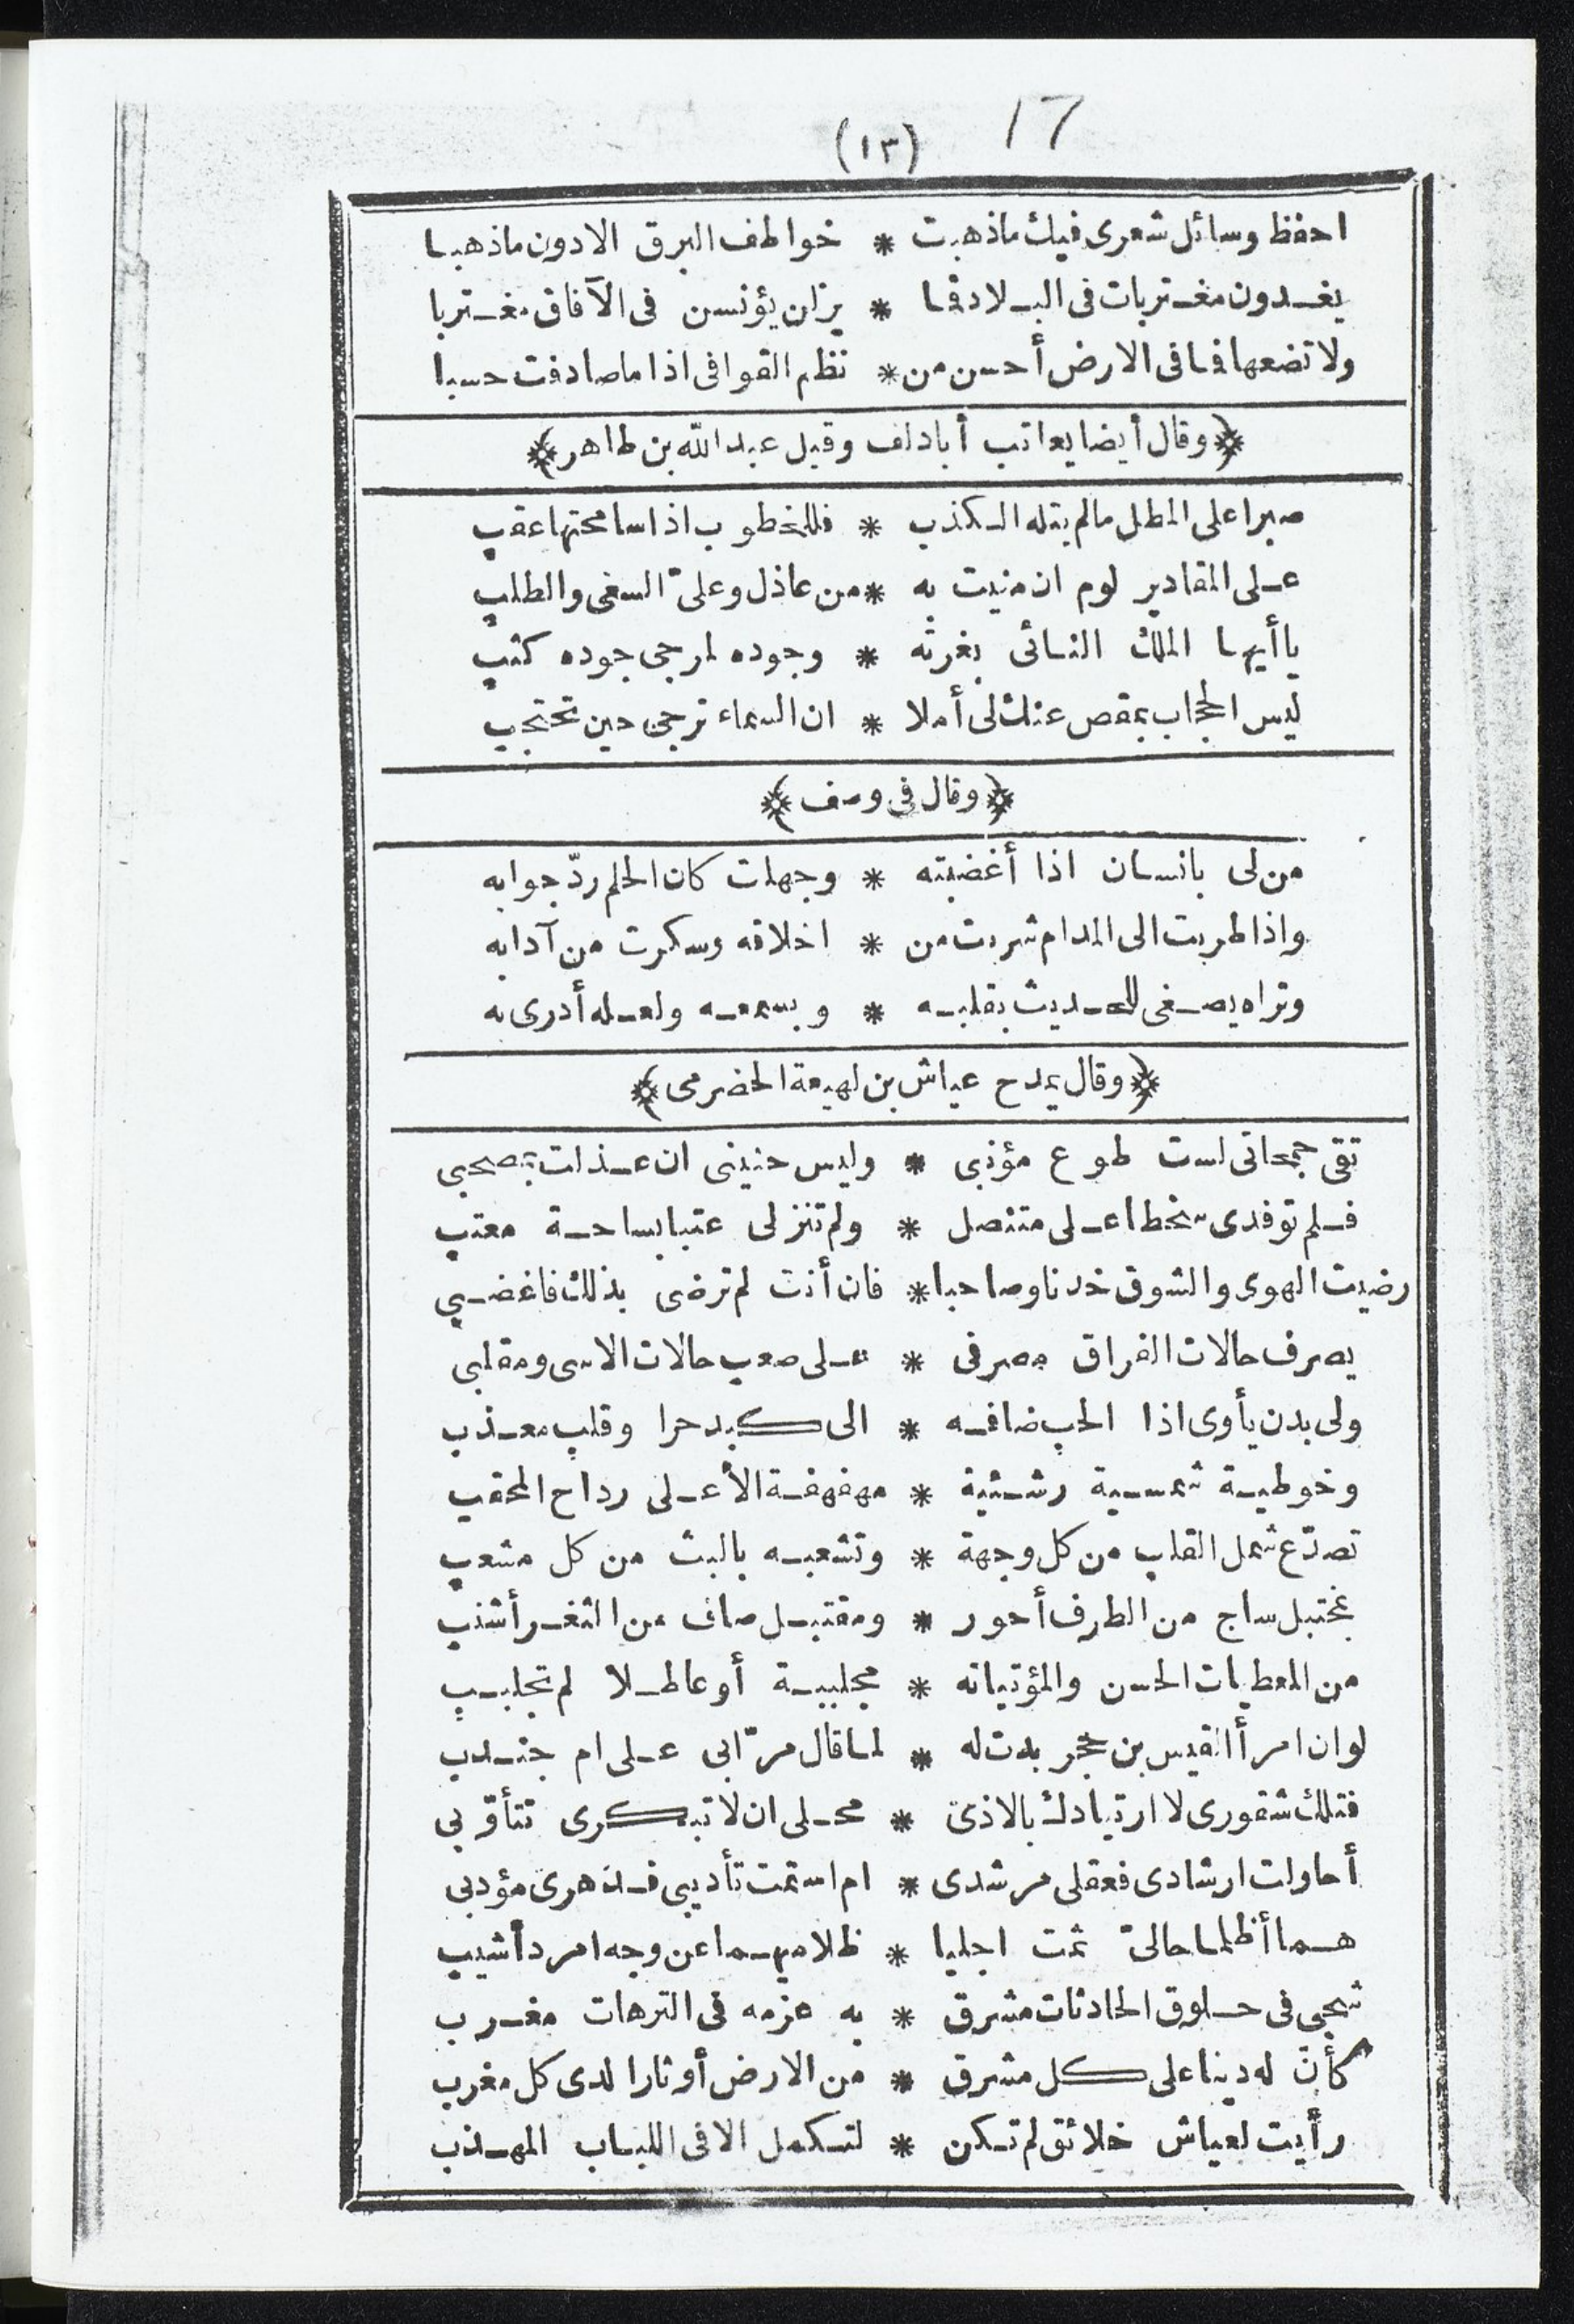 17
(١٣)
احفظ وسائل شعرى فيك ماذهبت * خواطف البرق الادون ماذهبا
يغدون مغتربات فى البلاد فما * يزان يؤنسن فى الآفاق مغتربا
ولا تضعها فما فى الارض أحسن من * نظم القوافى اذا ماصادفت حسبا
﴿وقال أيضا يعاتب أبادلف وقيل عبد الله بن طاهر﴾
صبرا على المطل مالم يتله الكذب * فللخطوب اذا سامحتها عقب
على المقادير لوم ان منيت به * من عاذل وعلىّ السعى والطلب
ياأيها الملك النائى بغرته * وجوده لمرجى جوده كثب
ليس الحجاب بمقص عنك لى أملا * ان السماء ترجى حين تحتجب
﴿وقال فى وصف﴾
من لى بانسان اذا أغضبته * وجهلت كان الحلم ردّ جوابه
واذا طربت الى المدام شربت من * اخلاقه وسكرت من آدابه
وتراه يصغى للحديث بقلبه * وبسمعه ولعله أدرى به
﴿وقال يمدح عياش بن لهيعة الحضرمى﴾
تقى جمحاتى لست طوع مؤنبى * وليس حنينى ان عذلت بمصحبى
فلم توفدى سخطا على متنصل * ولم تنزلى عتبا بساحة معتب
رضيت الهوى والشوق خدنا وصاحبا * فان أنت لم ترضى بذلك فاغضبى
يصرف حالات الفراق مصرفى * على صعب حالات الاسى ومقلبى
ولى بدن يأوى اذا الحب ضافه * الى كبد حرا وقلب معذب
وخوطية شمسية رشئية * مهفهفة الأعلى رداح المحقب
تصدّع شمل القلب من كل وجهة * وتشعبه بالبث من كل مشعب
بمختبل ساج من الطرف أحور * ومقتبل صاف من الثغر أشنب
من المعطيات الحسن والمؤتياته * مجلببة أو عاطلا لم تجلبب
لوان امرأ القيس بن حجر بدت له * لما قال مرّا بى على ام جندب
فتلك شقورى لا ارتيادك بالاذى * محلى ان لا تبكرى تتأوّبى
أحاولت ارشادى فعقلى مرشدى * ام استمت تأديبى فدهرى مؤدبى
هما أظلما حالىّ ثمت اجليا * ظلاميهما عن وجه امرد أشيب
شجى فى حلوق الحادثات مشرق * به عزمه فى الترهات مغرب
كأنّ له دينا على كل مشرق * من الارض أو ثارا لدى كل مغرب
رأيت لعياش خلائق لم تكن * لتكمل الا فى اللباب المهذب